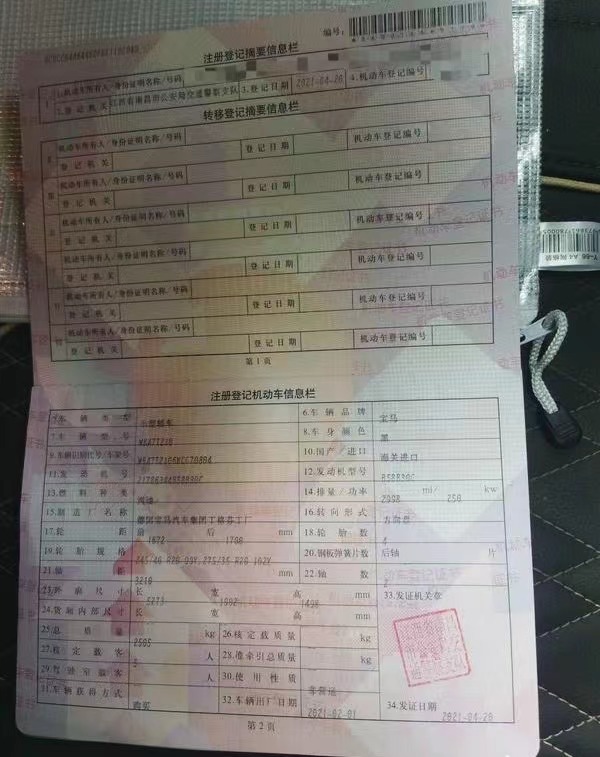 注册登记摘要信息栏
编号:
1.机动车所有人/身份证明名称/号码
2.登记机关 江西省南昌市公安局交通警察支队 3.登记日期 2021-04-20 4.机动车登记编号
转移登记摘要信息栏
机动车所有人/身份证明名称/号码
登记机关 登记日期 机动车登记编号
机动车所有人/身份证明名称/号码
登记机关 登记日期 机动车登记编号
机动车所有人/身份证明名称/号码
登记机关 登记日期 机动车登记编号
机动车所有人/身份证明名称/号码
登记机关 登记日期 机动车登记编号
机动车所有人/身份证明名称/号码
登记机关 登记日期 机动车登记编号
机动车所有人/身份证明名称/号码
登记机关 登记日期 机动车登记编号
第1页
注册登记机动车信息栏
5.车辆类型 小型轿车 6.车辆品牌 宝马
7.车辆型号 8.车身颜色 黑
9.车辆识别代号/车架号 10.国产/进口 海关进口
11.发动机号 12.发动机型号 B58B30C
13.燃料种类 汽油 14.排量/功率 2998 ml/ 250 kw
15.制造厂名称 德国宝马汽车集团丁格芬工厂 16.转向形式 方向盘
17.轮距 前 后 mm 18.轮胎数 4
19.轮胎规格 245/45 R20 99Y,275/35 R20 102Y 20.钢板弹簧片数 后轴 片
21.轴距 3210 mm 22.轴数 2
23.外廓尺寸 长 5273 宽 1902 高 1498 mm 33.发证机关章
24.货厢内部尺寸 长 宽 高 mm
25.总质量 2505 kg 26.核定载质量 kg
27.核定载客 5 人 28.准牵引总质量 kg
29.驾驶室载客 人 30.使用性质 非营运
31.车辆获得方式 购买 32.车辆出厂日期 2021-02-01 34.发证日期 2021-04-20
第2页